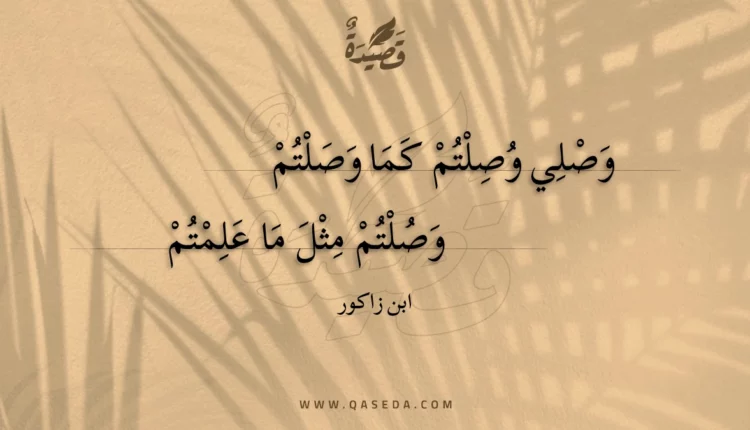 قَصِيدَةٌ
وَصْلِي وُصِلْتُمْ كَمَا وَصَلْتُمْ
وَصُلْتُمْ مِثْلَ مَا عَلِمْتُمْ
ابن زاكور
WWW.QASEDA.COM